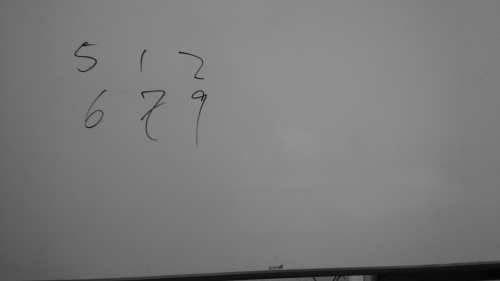 5 1 2
6 7 9